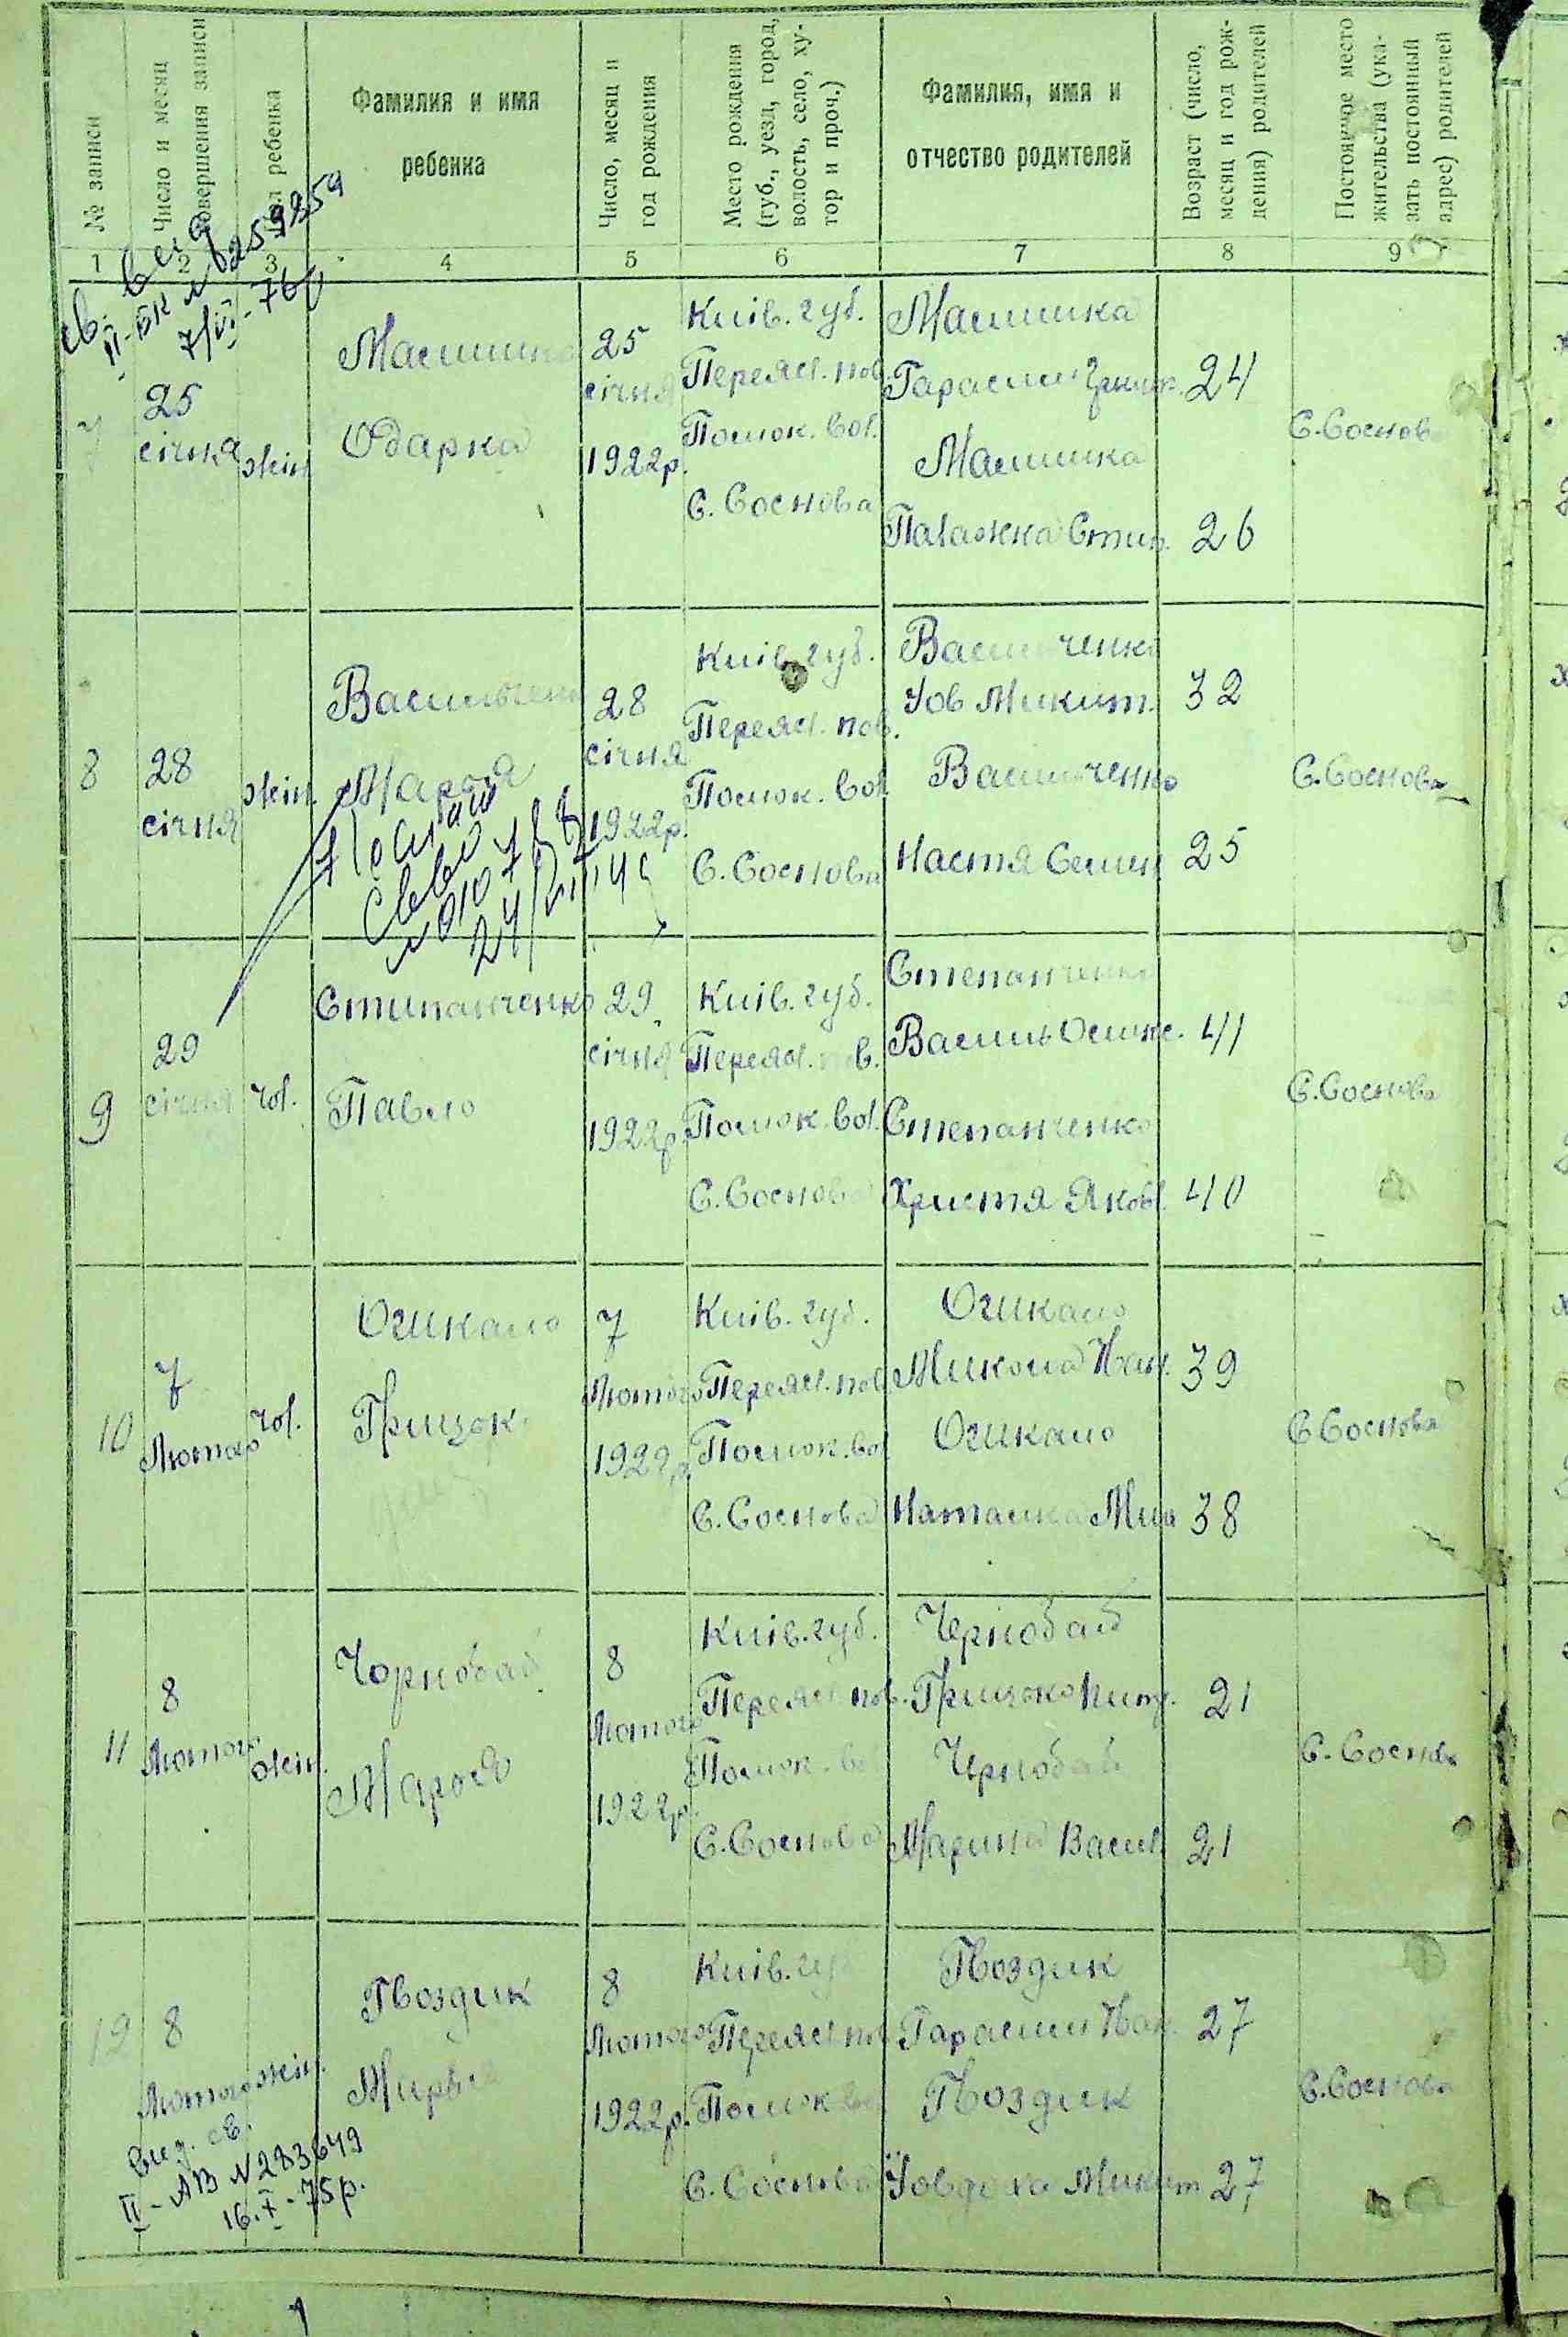 № записи
Число и месяц совершения записи
Пол ребенка
Фамилия и имя
ребенка
Число, месяц и
год рождения
Место рождения
(губ., уезд, город,
волость, село, ху-
тор и проч.)
Фамилия, имя и
отчество родителей
Возраст (число,
месяц и год рож-
дения) родителей
Постоянное место
жительства (ука-
зать постоянный
адрес) родителей
1 2 3 4 5 6 7 8 9
7/VI-76
7
25
січня
жін
Одарка
25
січня
1922р.
Київ. губ.
Переясл. пов.
Помок. вол.
С. Соснова
24
26
С. Соснова
8
28
січня
жін.
Васильченко
Маруся
24/VII
28
січня
1922р.
Київ. губ.
Переясл. пов.
Помок. вол.
С. Соснова
Васильченко
Иов Микит.
Васильченко
Настя Семен
32
25
С. Соснова
9
29
січня
чол.
Стипанченко
Павло
29
січня
1922р.
Київ. губ.
Переясл. пов.
Помок. вол.
С. Соснова
Степанченко
Василь
Степанченко
Христя Яковл.
41
40
С. Соснова
10
7
Лютого
чол.
Очикало
Грицько
7
Лютого
1922р.
Київ. губ.
Переясл. пов.
Помок. вол
С. Соснова
Очикало
Микола Иван.
Очикало
Наталка
39
38
С. Соснова
11
8
Лютого
жін.
Чорнобай
Маруся
8
Лютого
1922р.
Київ. губ.
Переясл. пов.
Помок. вол
С. Соснова
Чернобай
Грицько
Чернобай
Марина Васил
21
21
С. Соснова
12
8
Лютого
жін.
вид. св.
II-АВ №283649
16.X-75р.
Гвоздик
8
Лютого
1922р.
Київ. губ
Переясл. пов
Помок. вол
С. Соснова
Гвоздик
Гарасим Иван.
Гвоздик
Явдоха Микит
27
27
С. Соснова